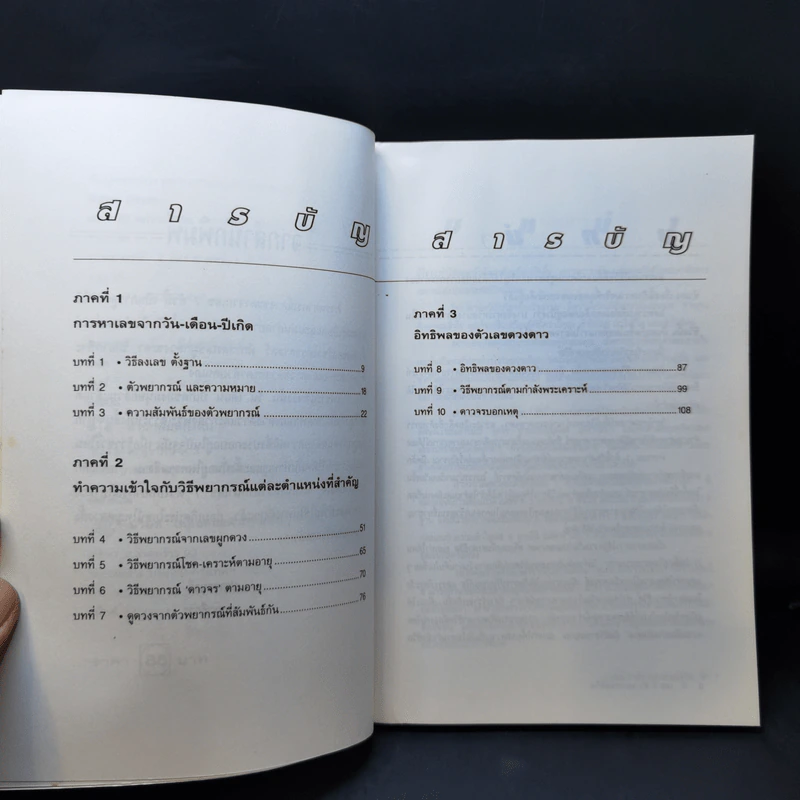 สารบัญ
ภาคที่ 1
การหาเลขจากวัน-เดือน-ปีเกิด
บทที่ 1 • วิธีลงเลข ตั้งฐาน 9
บทที่ 2 • ตัวพยากรณ์ และความหมาย 18
บทที่ 3 • ความสัมพันธ์ของตัวพยากรณ์ 22
ภาคที่ 2
ทำความเข้าใจกับวิธีพยากรณ์แต่ละตำแหน่งที่สำคัญ
บทที่ 4 • วิธีพยากรณ์จากเลขผูกดวง 51
บทที่ 5 • วิธีพยากรณ์โชค-เคราะห์ตามอายุ 65
บทที่ 6 • วิธีพยากรณ์ 'ดาวจร' ตามอายุ 70
บทที่ 7 • ดูดวงจากตัวพยากรณ์ที่สัมพันธ์กัน 76
สารบัญ
ภาคที่ 3
อิทธิพลของตัวเลขดวงดาว
บทที่ 8 • อิทธิพลของดวงดาว 87
บทที่ 9 • วิธีพยากรณ์ตามกำลังพระเคราะห์ 99
บทที่ 10 • ดาวจรบอกเหตุ 108